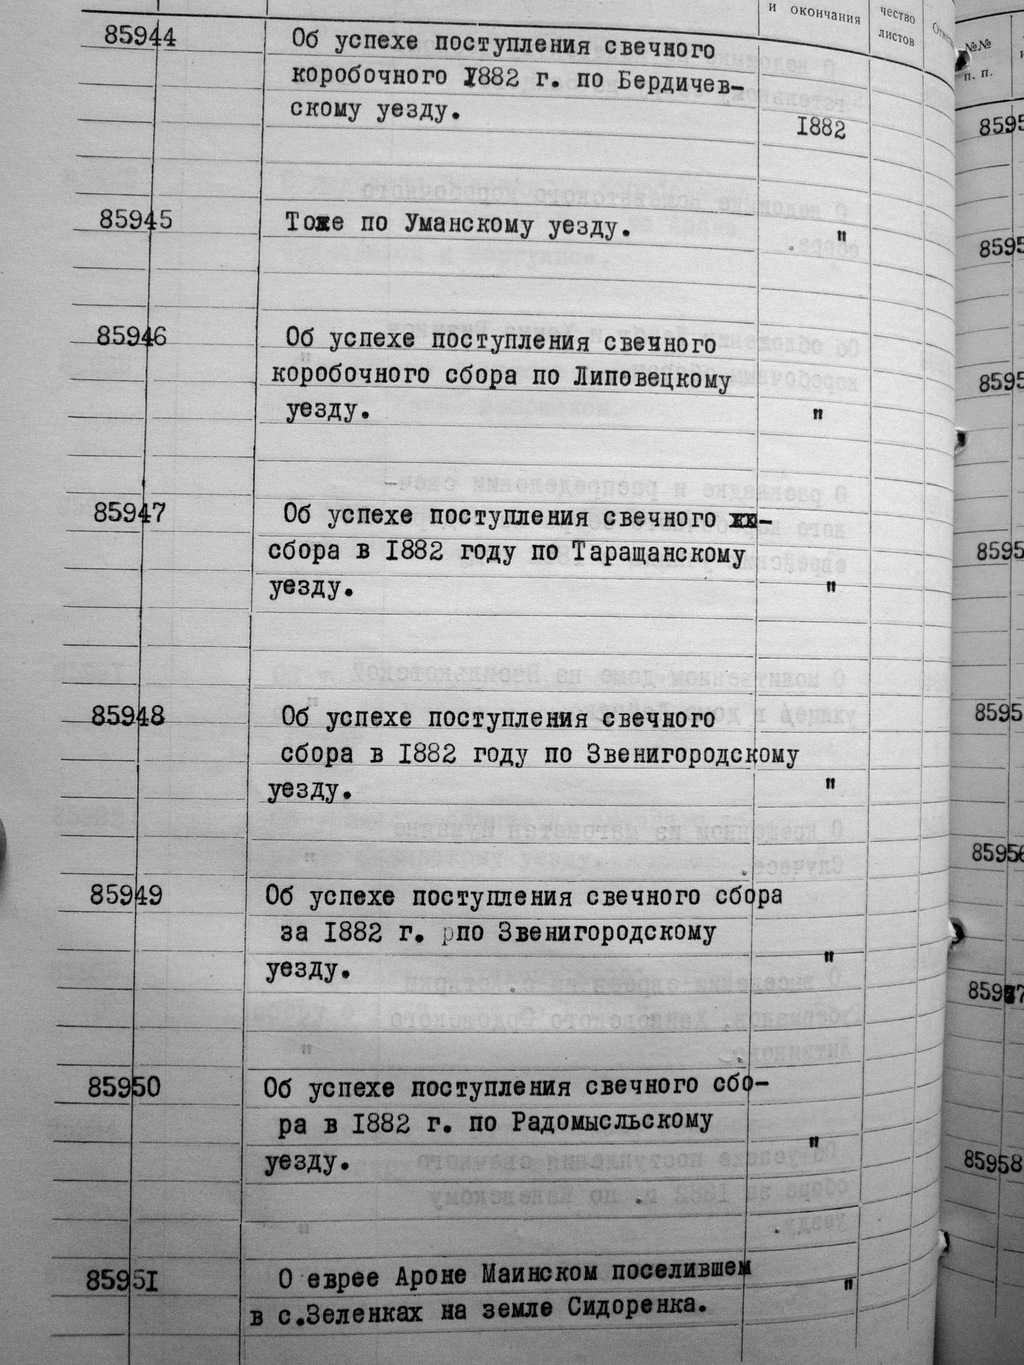 и окончания
чество
листов
№№
п. п.
85944 Об успехе поступления свечного
коробочного 1882 г. по Бердичев-
скому уезду.
1882
85945 Тоже по Уманскому уезду. "
85946 Об успехе поступления свечного
коробочного сбора по Липовецкому
уезду. "
85947 Об успехе поступления свечного
сбора в 1882 году по Таращанскому
уезду. "
85948 Об успехе поступления свечного
сбора в 1882 году по Звенигородскому
уезду. "
85949 Об успехе поступления свечного сбора
за 1882 г. рпо Звенигородскому
уезду. "
85950 Об успехе поступления свечного сбо-
ра в 1882 г. по Радомысльскому
уезду. "
85951 О еврее Ароне Маинском поселившем "
в с.Зеленках на земле Сидоренка.
85958